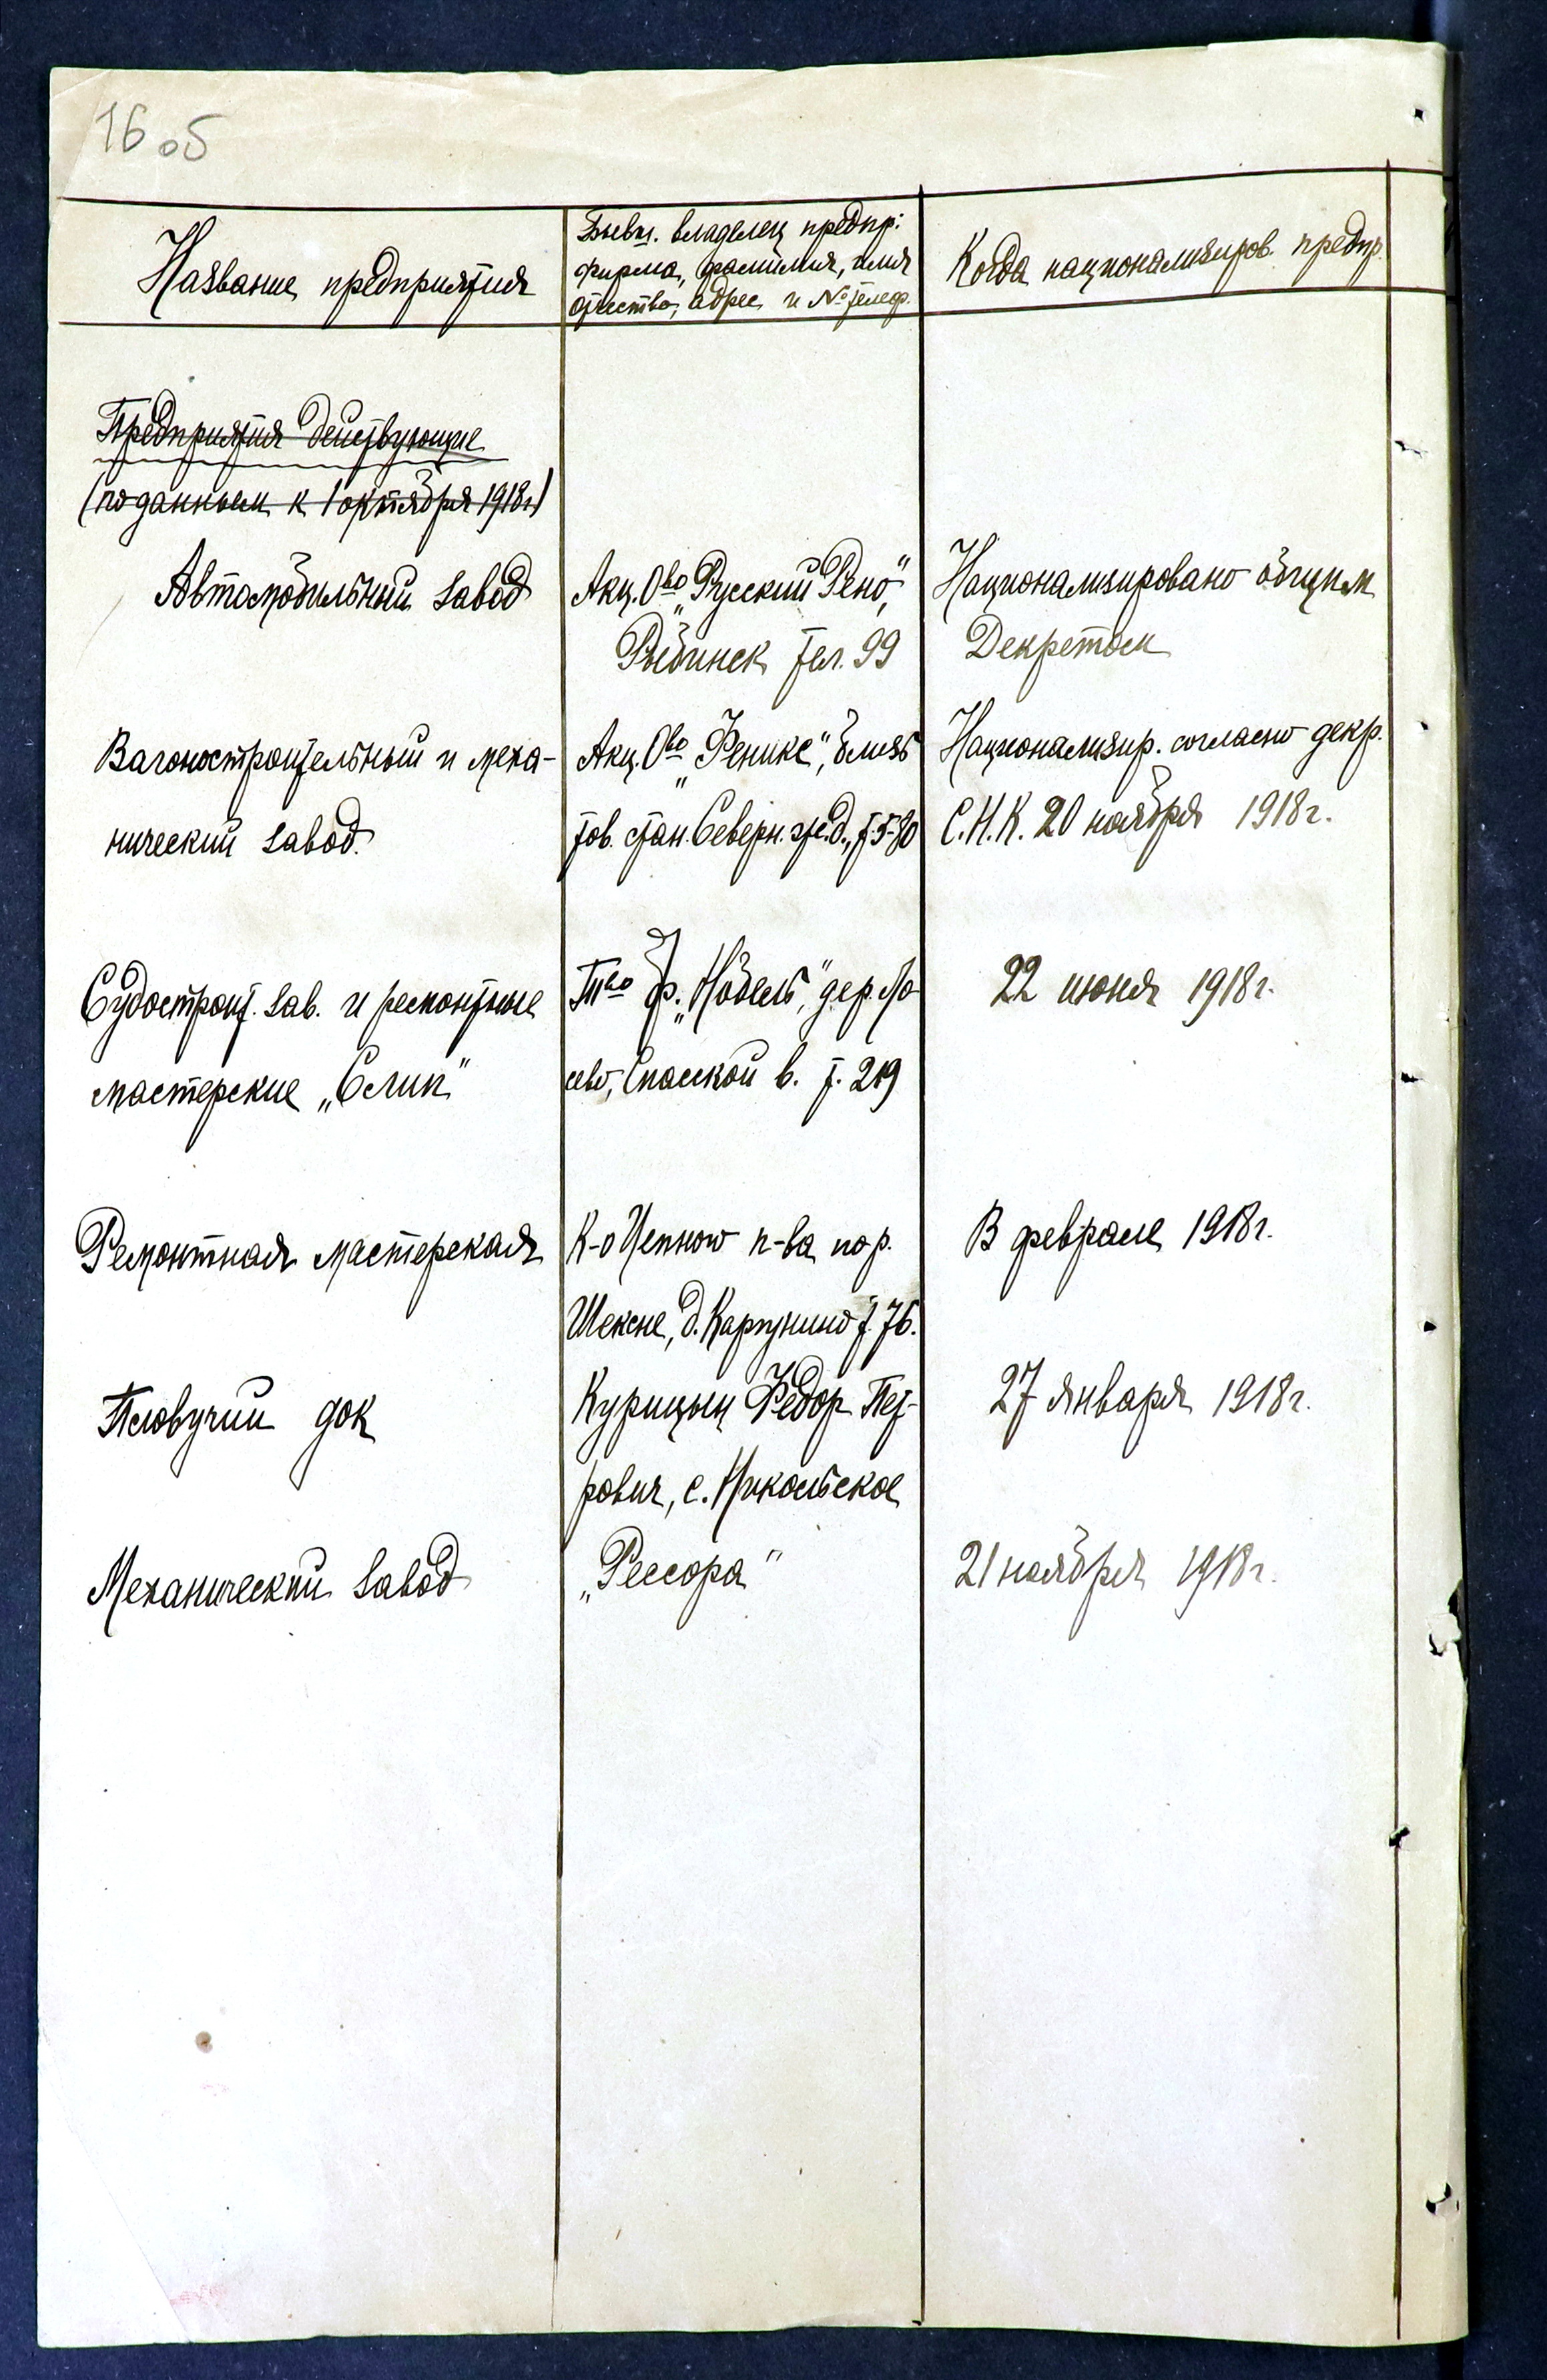 16 об
Название предприятия
Бывш. владелец предпр:
фирма, фамилия, имя
отчество, адрес и № телеф.
Когда национализиров. предпр.
Предприятия действующие
(по данным к 1 октября 1918 г)
Автомобильный завод
Акц. О-во „Русский Рено",
Рыбинск тел. 99
Национализировано общим
Декретом
Вагоностроительный и меха-
нический завод.
Акц. О-во „Феникс", близь
тов. стан. Северн. ж.д., т. 5-80
Национализир. согласно декр.
С.Н.К. 20 ноября 1918 г.
Судостроит. зав. и ремонтные
мастерские „Слип"
Т-во бр. „Нобель", дер. Ло-
сево, Спасской в. т. 219
22 июня 1918 г.
Ремонтная мастерская
К-о Цепного п-ва по р.
Шексне, д. Каргунино т. 76.
В феврале 1918 г.
Пловучий док
Курицын Федор Пет-
рович, с. Никольское
27 января 1918 г.
Механический завод
„Рессора"
21 ноября 1918 г.